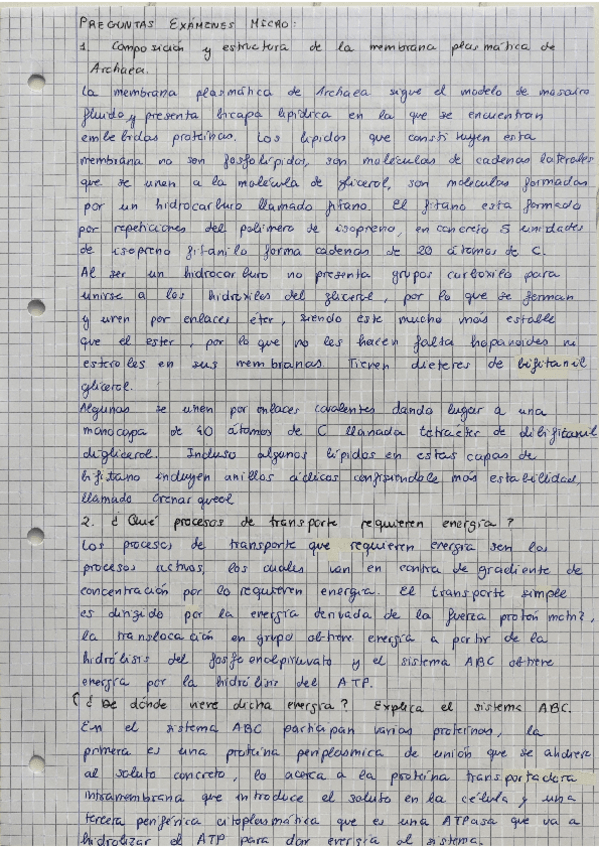 PREGUNTAS EXÁMENES MICRO:
1. Composición y estructura de la membrana plasmática de
Archaea.
La membrana plasmática de Archaea sigue el modelo de mosaico
fluido y presenta bicapa lipídica en la que se encuentran
embebidas proteínas. Los lípidos que constituyen esta
membrana no son fosfolípidos, son moléculas de cadenas laterales
que se unen a la molécula de glicerol, son moléculas formadas
por un hidrocarburo llamado fitano. El fitano esta formado
por repeticiones del polímero de isopreno, en concreto 5 unidades
de isopreno fitanilo forma cadenas de 20 átomos de C.
Al ser un hidrocarburo no presenta grupos carboxilo para
unirse a los hidroxilos del glicerol, por lo que se forman
y unen por enlaces éter, siendo este mucho más estable
que el ester, por lo que no les hacen falta hopanoides ni
esteroles en sus membranas. Tienen dieteres de bifitanil
glicerol.
Algunas se unen por enlaces covalentes dando lugar a una
monocapa de 40 átomos de C llamada tetraéter de dibifitanil
diglicerol. Incluso algunos lípidos en estas capas de
bifitano incluyen anillos cíclicos confiriendole más estabilidad,
llamado crenarqueol
2. ¿Qué procesos de transporte requieren energía?
Los procesos de transporte que requieren energía son los
procesos activos, los cuales van en contra de gradiente de
concentración por lo requieren energía. El transporte simple
es dirigido por la energía derivada de la fuerza protón motriz,
la translocación en grupo obtiene energía a partir de la
hidrólisis del fosfoenolpiruvato y el sistema ABC obtiene
energía por la hidrólisis del ATP.
(¿De dónde viene dicha energía? Explica el sistema ABC.
En el sistema ABC participan varias proteínas, la
primera es una proteína periplásmica de unión que se adhiere
al soluto concreto, lo acerca a la proteína transportadora
intramembrana que introduce el soluto en la célula y una
tercera periférica citoplasmática que es una ATPasa que va a
hidrolizar el ATP para dar energía al sistema.